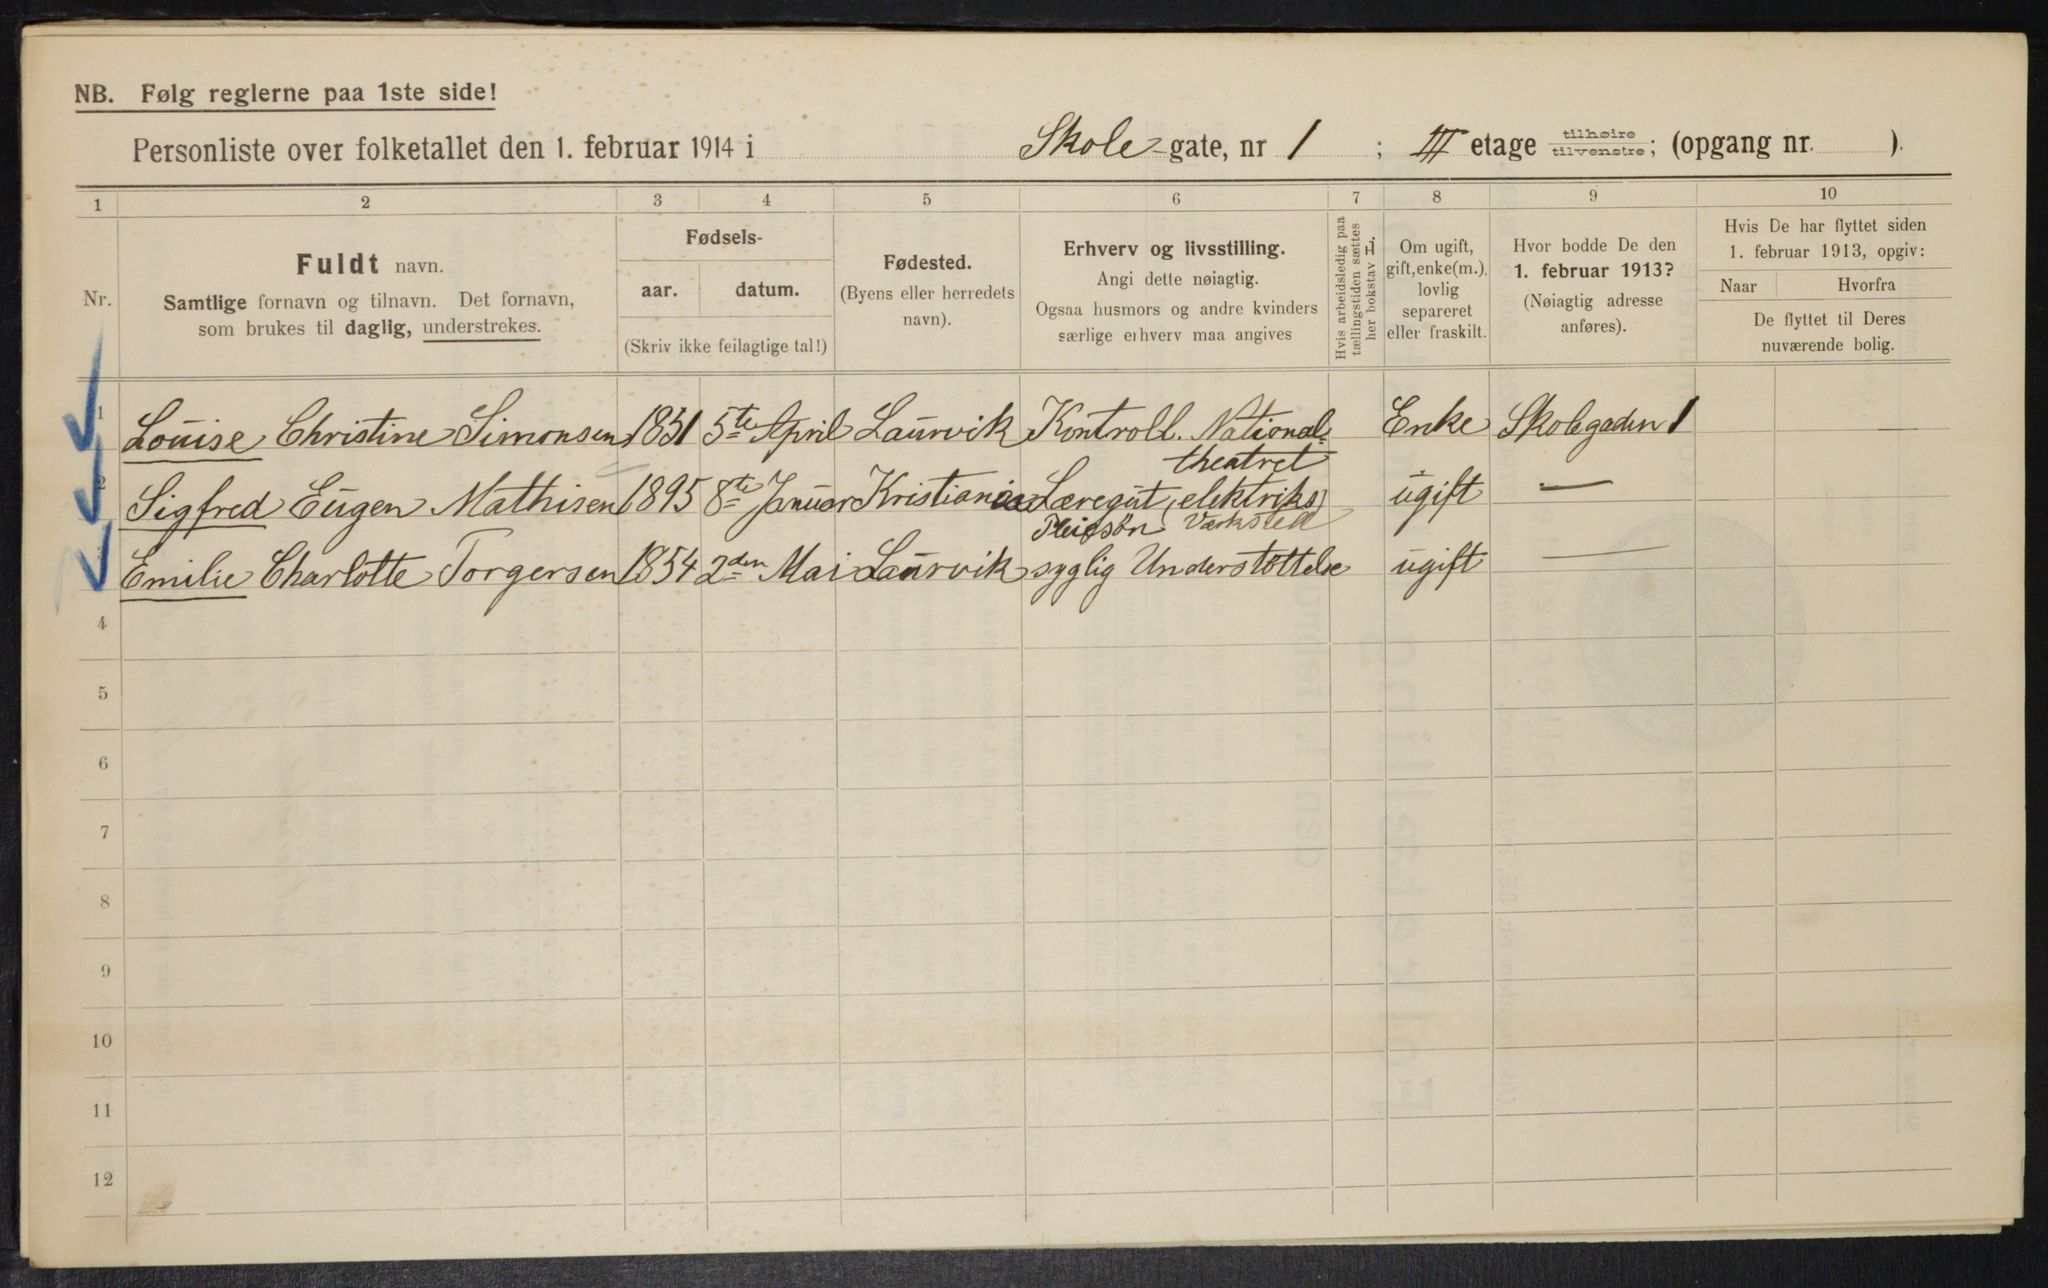 NB. Følg reglerne paa 1ste side!
Personliste over folketallet den 1. februar 1914 i Skole-gate, nr 1 ; III etage tilhøire tilvenstre; (opgang nr. ).
1 2 3 4 5 6 7 8 9 10
Nr.
Fuldt navn.
Samtlige fornavn og tilnavn. Det fornavn,
som brukes til daglig, understrekes.
Fødsels-
aar. datum.
(Skriv ikke feilagtige tal!)
Fødested.
(Byens eller herredets
navn).
Erhverv og livsstilling.
Angi dette nøiagtig.
Ogsaa husmors og andre kvinders
særlige erhverv maa angives
Hvis arbeidsledig paa
tællingstiden sættes
her bokstav H.
Om ugift,
gift, enke(m.),
lovlig
separeret
eller fraskilt.
Hvor bodde De den
1. februar 1913?
(Nøiagtig adresse
anføres).
Hvis De har flyttet siden
1. februar 1913, opgiv:
Naar Hvorfra
De flyttet til Deres
nuværende bolig.
1 Louise Christine Simonsen 1851 5te April Laurvik Kontroll. National- Enke Skolegaden 1
theatret
2 Sigfred Eugen Mathisen 1895 8te Januar Kristiania Læregut, elektriks ugift —
Pleiesøn Værksted
3 Emilie Charlotte Torgersen 1854 2den Mai Laurvik syglig Understøttelse ugift —
4
5
6
7
8
9
10
11
12